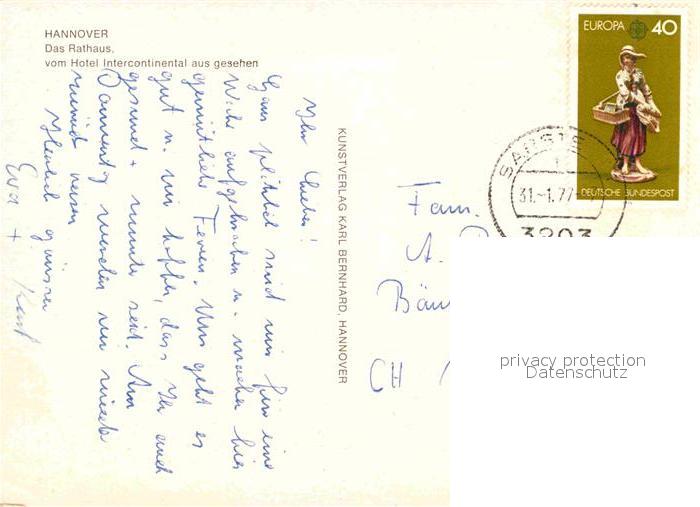 HANNOVER
Das Rathaus,
vom Hotel Intercontinental aus gesehen
Ihr Lieben!
Ganz plötzlich sind wir für eine
Woche aufgebrochen u. machen hier
gemütliche Ferien. Uns geht es
gut u. wir hoffen, dass Ihr auch
gesund + munter seid. Am
Donnerstag werden wir wieder
zurück reisen
Herzlich grüssen
Eva +
KUNSTVERLAG KARL BERNHARD, HANNOVER
EUROPA 40
DEUTSCHE BUNDESPOST
31.-1.77
3203
Fam.
A.
CH
privacy protection
Datenschutz